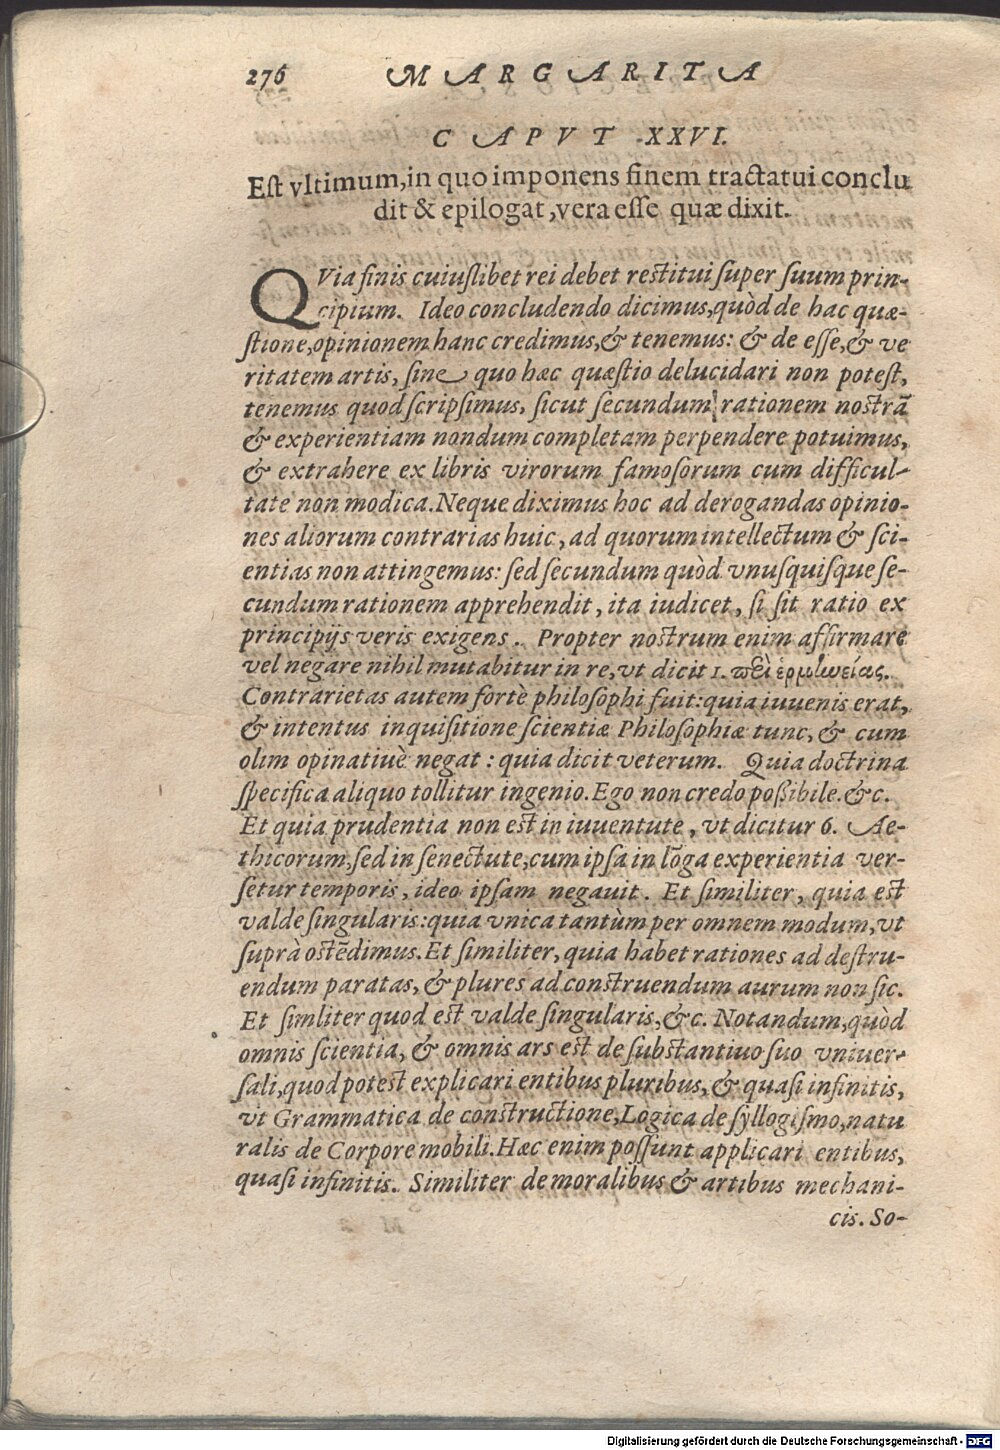 276 MARGARITA
CAPVT XXVI.
Est vltimum, in quo imponens finem tractatui conclu
dit & epilogat, vera esse quæ dixit.
QVia finis cuiuslibet rei debet restitui super suum prin-
cipium. Ideo concludendo dicimus, quòd de hac quæ-
stione, opinionem hanc credimus, & tenemus: & de esse, & ve
ritatem artis, sine quo hæc quæstio delucidari non potest,
tenemus quod scripsimus, sicut secundum rationem nostrã
& experientiam nondum completam perpendere potuimus,
& extrahere ex libris virorum famosorum cum difficul-
tate non modica. Neque diximus hoc ad derogandas opinio-
nes aliorum contrarias huic, ad quorum intellectum & sci-
entias non attingemus: sed secundum quòd vnusquisque se-
cundum rationem apprehendit, ita iudicet, si sit ratio ex
principijs veris exigens. Propter nostrum enim affirmare
vel negare nihil mutabitur in re, vt dicit 1. περὶ ἑρμηνείας.
Contrarietas autem fortè philosophi fuit: quia iuuenis erat,
& intentus inquisitione scientiæ Philosophiæ tunc, & cum
olim opinatiuè negat: quia dicit veterum. Quia doctrina
specifica aliquo tollitur ingenio. Ego non credo possibile. &c.
Et quia prudentia non est in iuuentute, vt dicitur 6. Ae-
thicorum, sed in senectute, cum ipsa in lõga experientia ver-
setur temporis, ideo ipsam negauit. Et similiter, quia est
valde singularis: quia vnica tantùm per omnem modum, vt
suprà ostẽdimus. Et similiter, quia habet rationes ad destru-
endum paratas, & plures ad construendum aurum non sic.
Et similiter quod est valde singularis, &c. Notandum, quòd
omnis scientia, & omnis ars est de substantiuo suo vniuer-
sali, quod potest explicari entibus pluribus, & quasi infinitis,
vt Grammatica de constructione, Logica de syllogismo, natu
ralis de Corpore mobili. Hæc enim possunt applicari entibus,
quasi infinitis. Similiter de moralibus & artibus mechani-
cis. So-
Digitalisierung gefördert durch die Deutsche Forschungsgemeinschaft - DFG